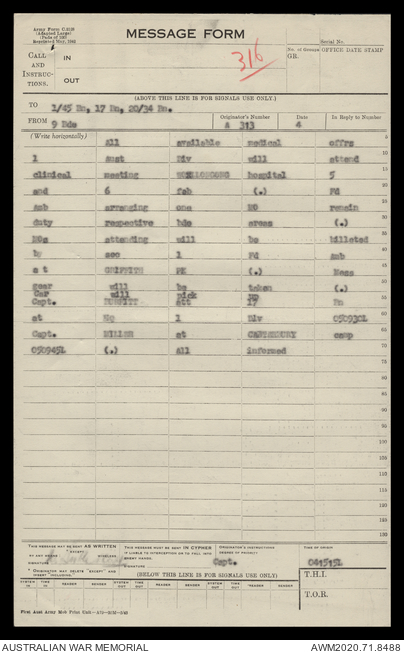 Army Form C.2128
(Adapted Large)
MESSAGE FORM
316
Serial No.
CALL
AND
INSTRUC-
TIONS.
IN
OUT
No. of Groups
GR.
OFFICE DATE STAMP
(ABOVE THIS LINE IS FOR SIGNALS USE ONLY.)
TO 1/45 Bn, 17 Bn, 20/34 Bn.
FROM 9 Bde
Originator's Number A 313
Date 4
In Reply to Number
(Write horizontally)
All available medical offrs 5
1 Aust Div will attend 10
clinical meeting hospital 5 15
and 6 feb (.) Fd 20
amb arranging one MO remain 25
duty respective bde areas (.) 30
MOs attending will be billeted 35
by sec 1 Fd amb 40
at GRIFFITH PK (.) Mess 45
gear will be taken (.) 50
Car will pick up
Capt. att 17 Bn 55
at HQ 1 Div 050930L 60
Capt. at CANTERBURY camp 65
050945L (.) All informed 70
75
80
85
90
95
100
105
110
115
120
125
130
THIS MESSAGE MAY BE SENT AS WRITTEN
BY ANY MEANS "EXCEPT" WIRELESS
SIGNATURE
THIS MESSAGE MUST BE SENT IN CIPHER
IF LIABLE TO INTERCEPTION OR TO FALL INTO
ENEMY HANDS.
SIGNATURE
Capt.
ORIGINATOR'S INSTRUCTIONS
DEGREE OF PRIORITY
TIME OF ORIGIN
041515L
* ORIGINATOR MAY DELETE "EXCEPT" AND
INSERT "INCLUDING."
(BELOW THIS LINE IS FOR SIGNALS USE ONLY)
T.H.I.
SYSTEM IN TIME IN READER SENDER SYSTEM OUT TIME OUT READER SENDER SYSTEM OUT TIME OUT READER SENDER
T.O.R.
AUSTRALIAN WAR MEMORIAL
AWM2020.71.8488